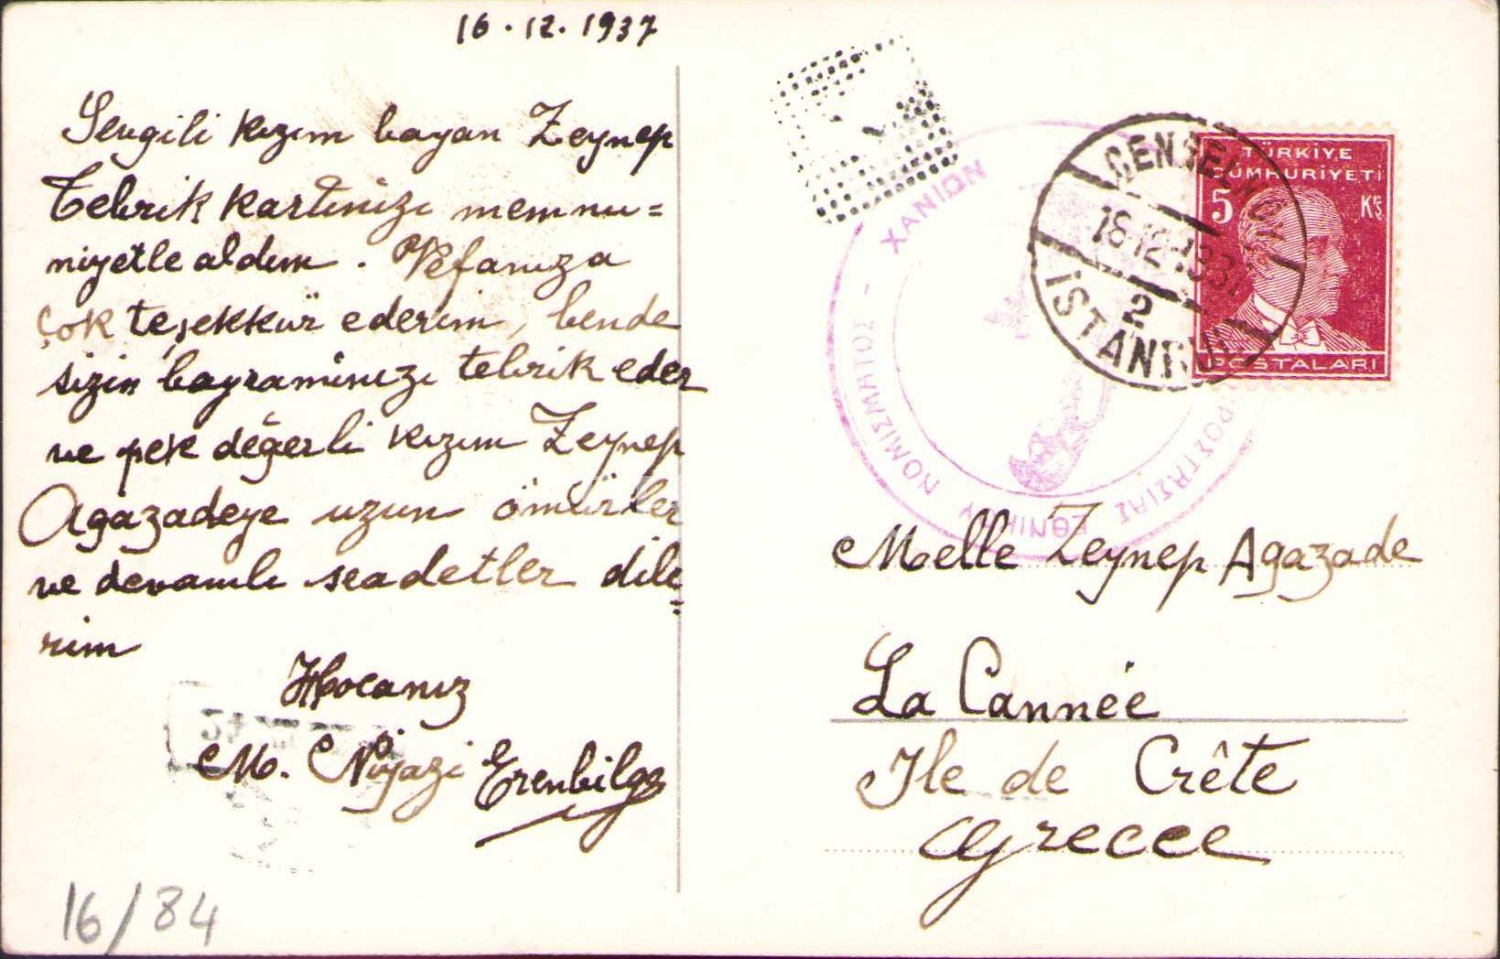 16.12.1937
Sevgili kızım bayan Zeynep
Tebrik kartınızı memnu=
niyetle aldım. Vefanıza
çok teşekkür ederim, bende
sizin bayramınızı tebrik eder
ve pek değerli kızım Zeynep
Agazadeye uzun ömürler
ve devamlı seadetler dile=
rim
Hocanız
M. Niyazi Erenbilge
16/84
TÜRKİYE
CUMHURİYETİ
5 Krş
POSTALARI
ÇENGELKÖY
18.12.193
2
İSTANBUL
ΧΑΝΙΩΝ
ΠΡΟΣΤΑΣΙΑΣ ΕΘΝΙΚΟΥ ΝΟΜΙΣΜΑΤΟΣ -
Melle Zeynep Agazade
La Cannée
Ile de Crête
Grecee